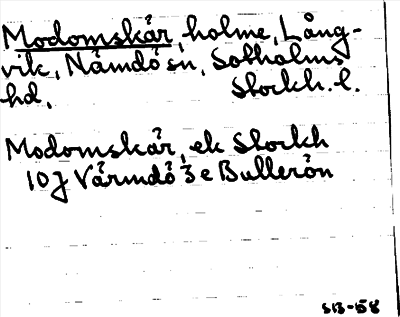 Modomskär, holme, Lång-
vik, Nämdö sn, Sotholms
hd, Stockh. l.
Modomskär, ek Stockh
10 J Värmdö 3 e Bullerön
SB-58